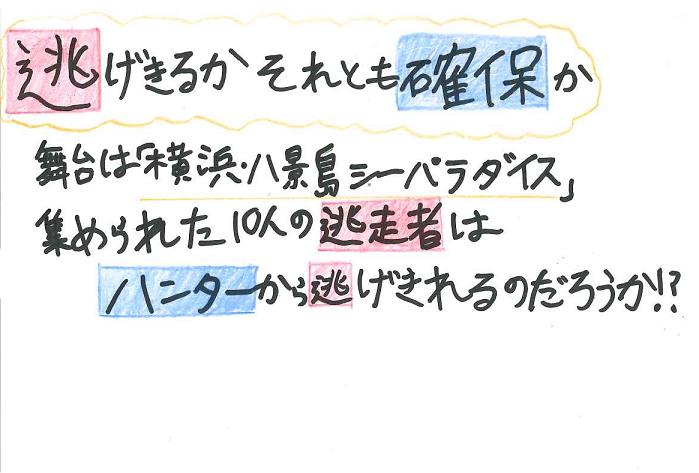 逃げきるか それとも確保か
舞台は「横浜・八景島シーパラダイス」
集められた10人の逃走者は
ハンターから逃げきれるのだろうか!?